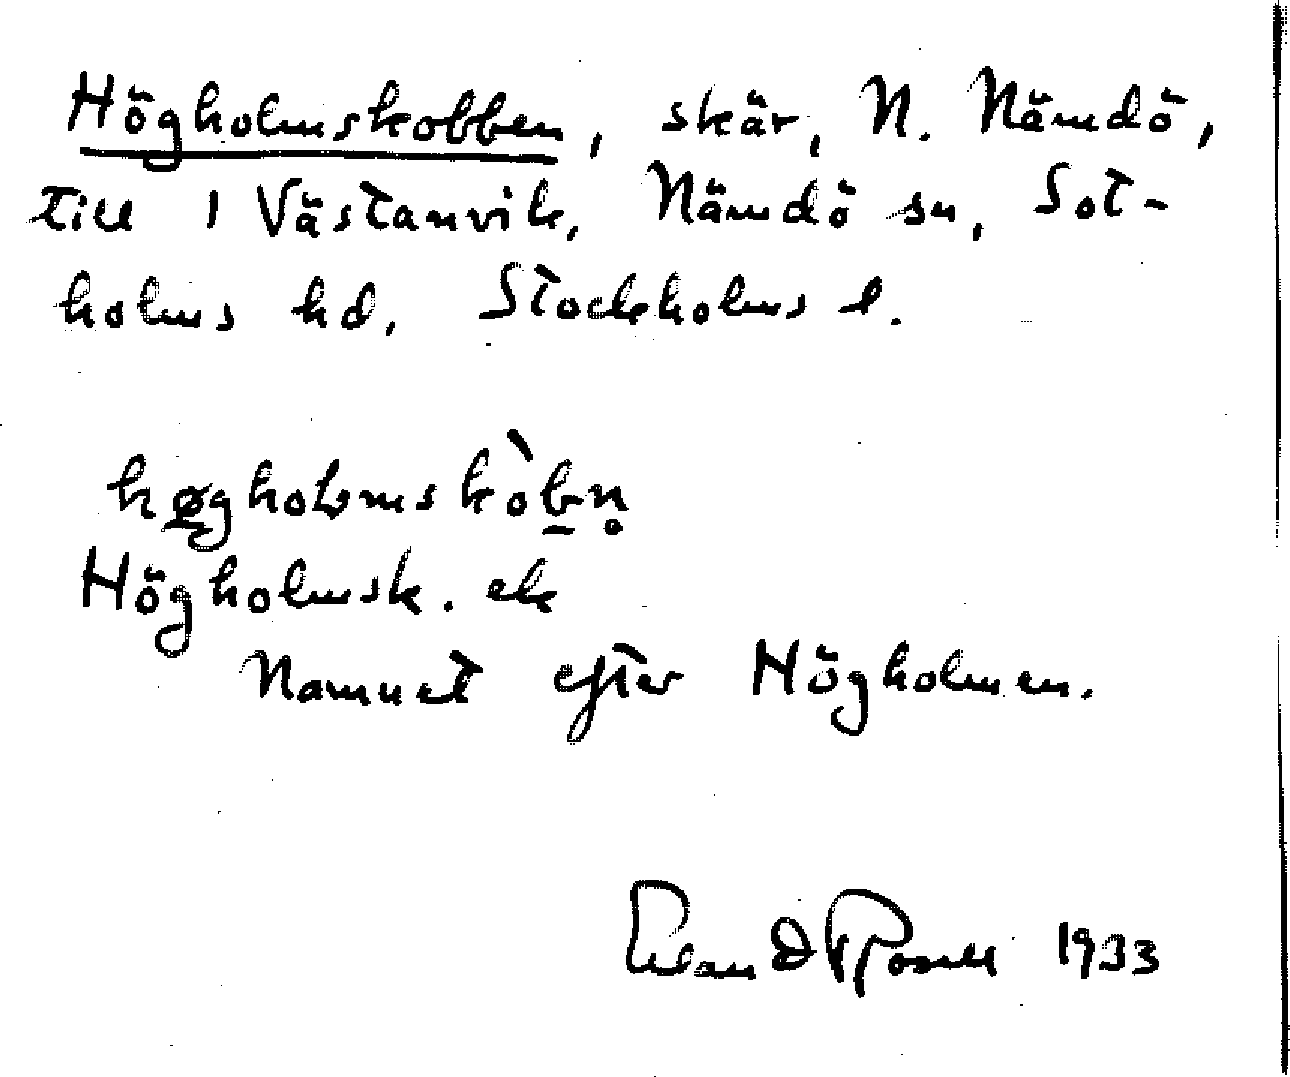 Högholmskobben, skär, N. Nämdö,
till 1 Västanvik, Nämdö sn, Sot-
holms hd, Stockholms l.
høgholmskòbn̥
Högholmsk. ek
Namnet efter Högholmen.
Erland Rosell 1933